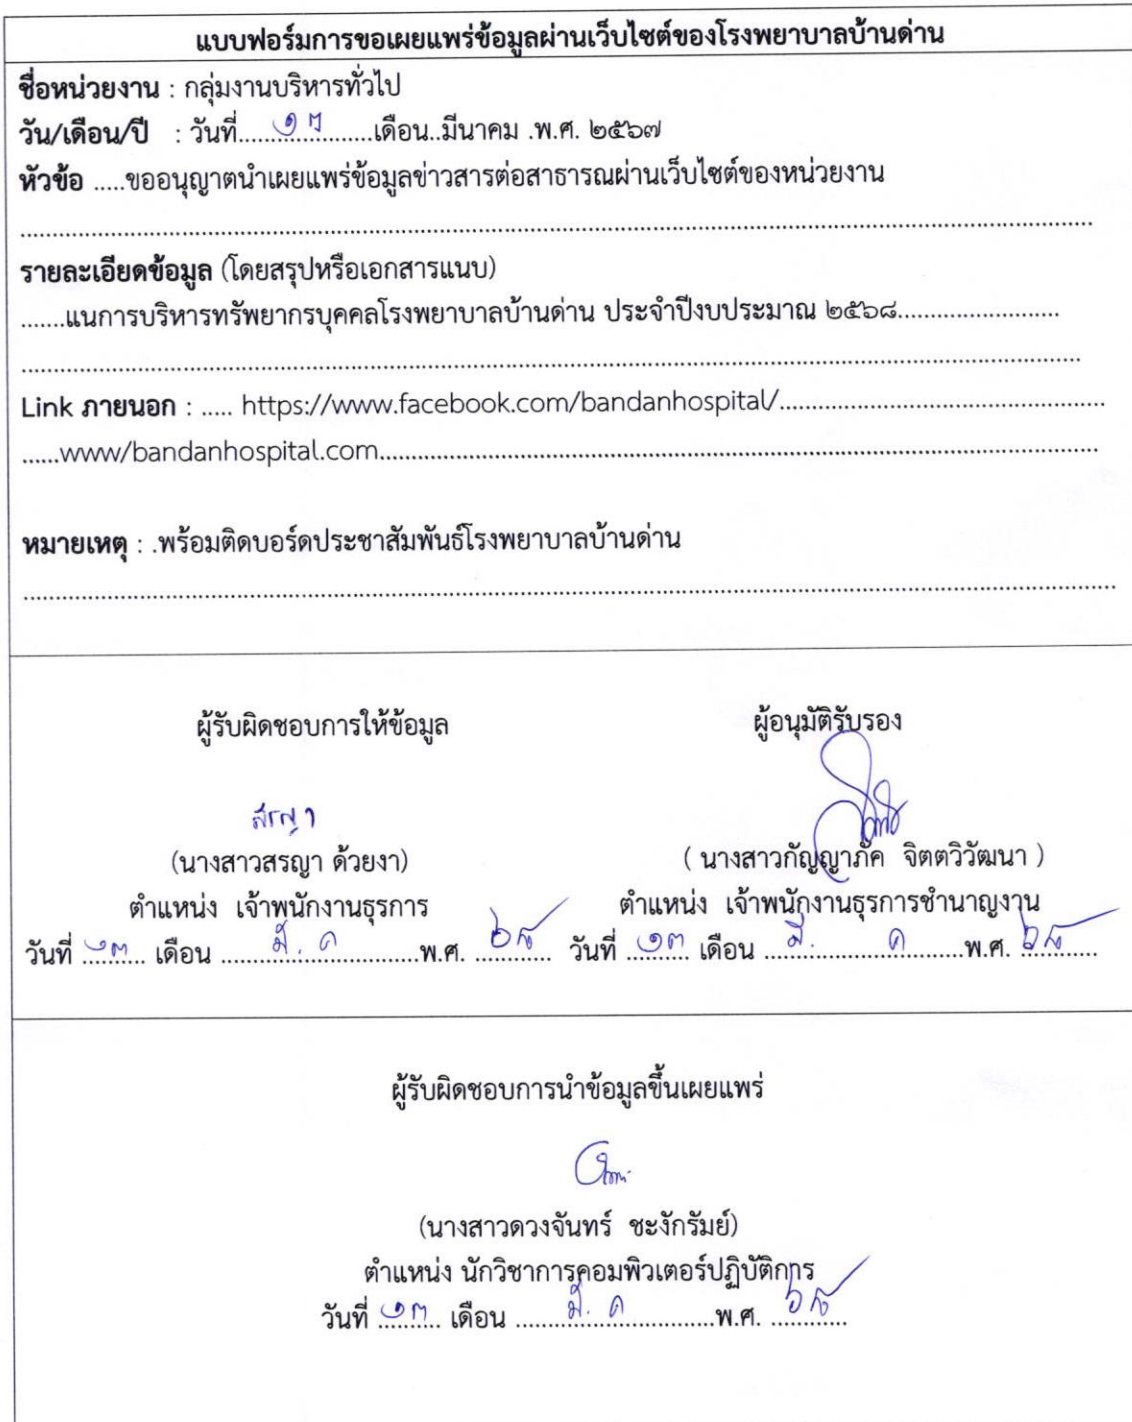 แบบฟอร์มการขอเผยแพร่ข้อมูลผ่านเว็บไซต์ของโรงพยาบาลบ้านด่าน
ชื่อหน่วยงาน : กลุ่มงานบริหารทั่วไป
วัน/เดือน/ปี : วันที่.....๑๓.....เดือน..มีนาคม .พ.ศ. ๒๕๖๗
หัวข้อ .....ขออนุญาตนำเผยแพร่ข้อมูลข่าวสารต่อสาธารณผ่านเว็บไซต์ของหน่วยงาน
รายละเอียดข้อมูล (โดยสรุปหรือเอกสารแนบ)
.......แนการบริหารทรัพยากรบุคคลโรงพยาบาลบ้านด่าน ประจำปีงบประมาณ ๒๕๖๘.........................
Link ภายนอก : ..... https://www.facebook.com/bandanhospital/.....
......www/bandanhospital.com.....
หมายเหตุ : .พร้อมติดบอร์ดประชาสัมพันธ์โรงพยาบาลบ้านด่าน
ผู้รับผิดชอบการให้ข้อมูล ผู้อนุมัติรับรอง
สรญา
(นางสาวสรญา ด้วยงา) ( นางสาวกัญญาภัค จิตตวิวัฒนา )
ตำแหน่ง เจ้าพนักงานธุรการ ตำแหน่ง เจ้าพนักงานธุรการชำนาญงาน
วันที่ ๑๓ เดือน มี.ค พ.ศ. ๖๘ วันที่ ๑๓ เดือน มี. ค พ.ศ. ๖๘
ผู้รับผิดชอบการนำข้อมูลขึ้นเผยแพร่
(นางสาวดวงจันทร์ ชะงักรัมย์)
ตำแหน่ง นักวิชาการคอมพิวเตอร์ปฏิบัติการ
วันที่ ๑๓ เดือน มี. ค พ.ศ. ๖๘